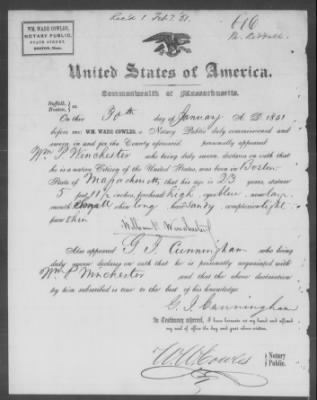 Rec'd 1 Feb 7. 51.
616
WM. WADE COWLES,
NOTARY PUBLIC,
STATE STREET,
BOSTON, Mass.
United States of America.
Commonwealth of Massachusetts.
Suffolk, ss.
Boston,
On this 30th day of January A. D. 1851
before me: WM. WADE COWLES, a Notary Public duly commissioned and
sworn in and for the County aforesaid, personally appeared
Wm P Winchester who being duly sworn declares on oath that
he is a native Citizen of the United States, was born in Boston
State of Massachusetts, that he is 23 years, stature
5 feet inches, forehead high, eyes blue, nose large
mouth small chin long hair sandy, complexion light
face thin
William P. Winchester
Also appeared G. J. Cunningham who being
duly sworn declares on oath that he is personally acquainted with
Wm P Winchester and that the above declaration
by him subscribed is true to the best of his knowledge
G. J. Cunningham
In Testimony whereof, I have hereunto set my hand and affixed
my seal of office the day and year above written.
W. W. Cowles
Notary
Public.